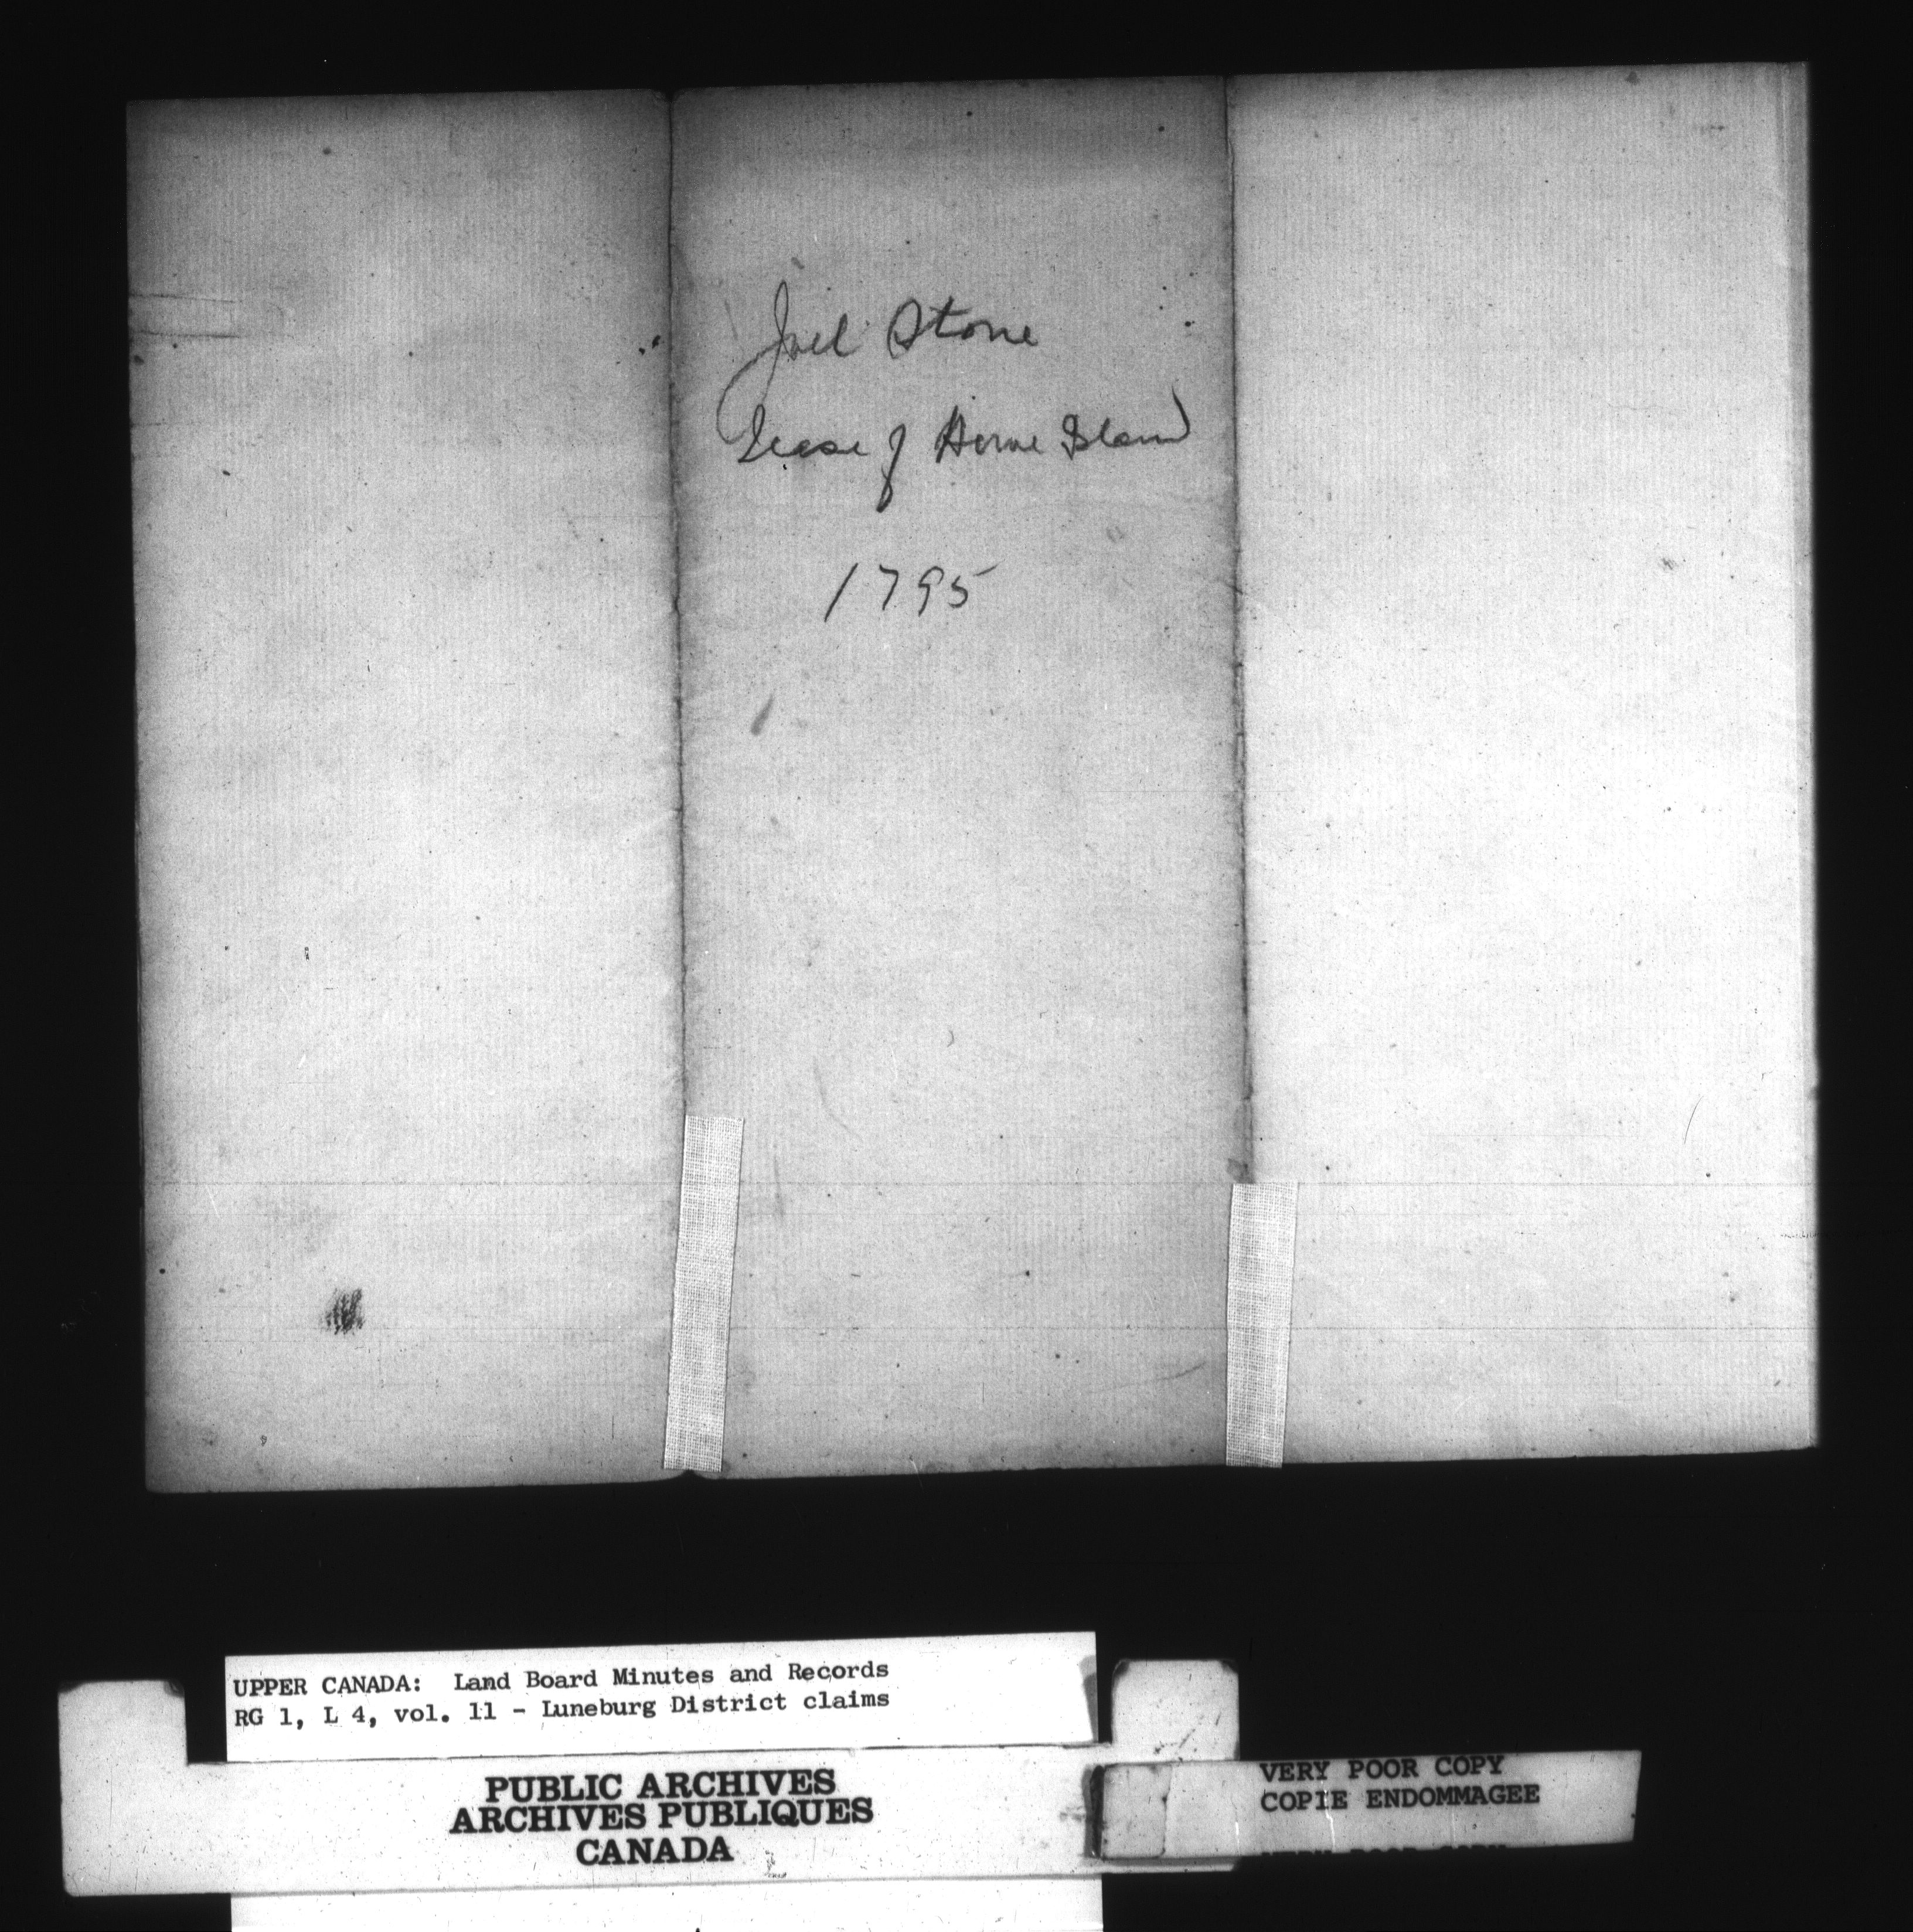 Joel Stone
Lease of Horne Island
1795
UPPER CANADA: Land Board Minutes and Records
RG 1, L 4, vol. 11 - Luneburg District claims
PUBLIC ARCHIVES
ARCHIVES PUBLIQUES
CANADA
VERY POOR COPY
COPIE ENDOMMAGEE